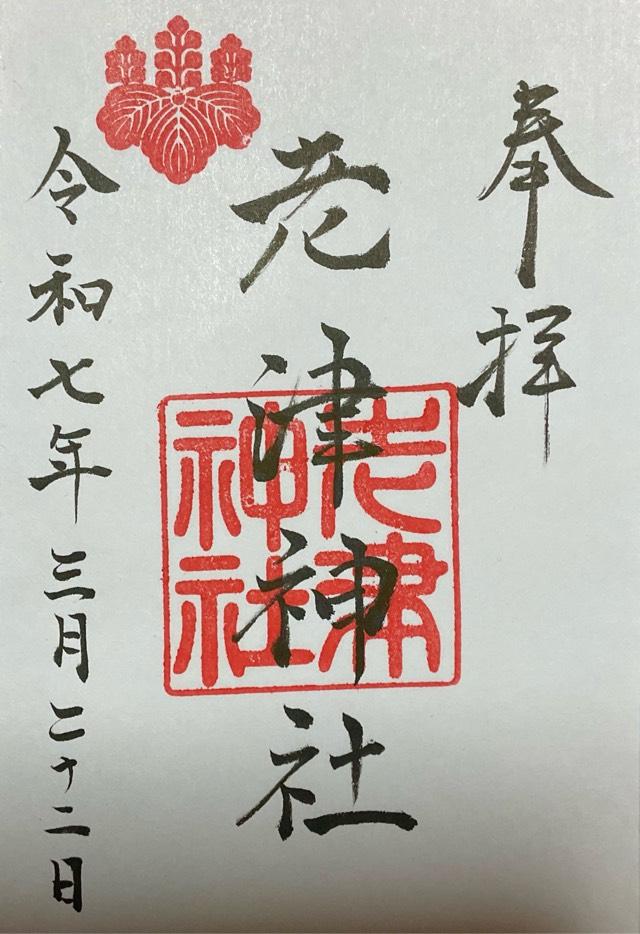 奉拝
老津神社
老津神社
令和七年三月二十二日